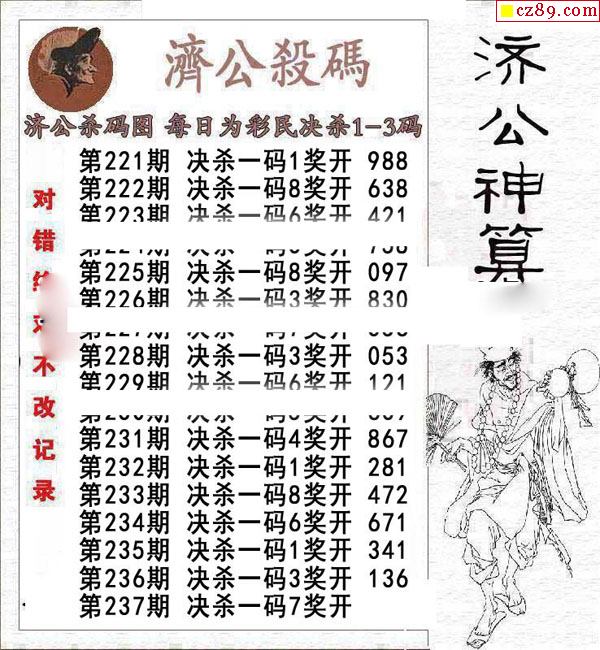 cz89.com
濟公殺碼
济公杀码图 每日为彩民决杀1-3码
第221期 决杀一码1奖开 988
第222期 决杀一码8奖开 638
第223期 决杀一码6奖开 421
第225期 决杀一码8奖开 097
第226期 决杀一码3奖开 830
第228期 决杀一码3奖开 053
第229期 决杀一码6奖开 121
第231期 决杀一码4奖开 867
第232期 决杀一码1奖开 281
第233期 决杀一码8奖开 472
第234期 决杀一码6奖开 671
第235期 决杀一码1奖开 341
第236期 决杀一码3奖开 136
第237期 决杀一码7奖开
对错
不改记录
济公神算